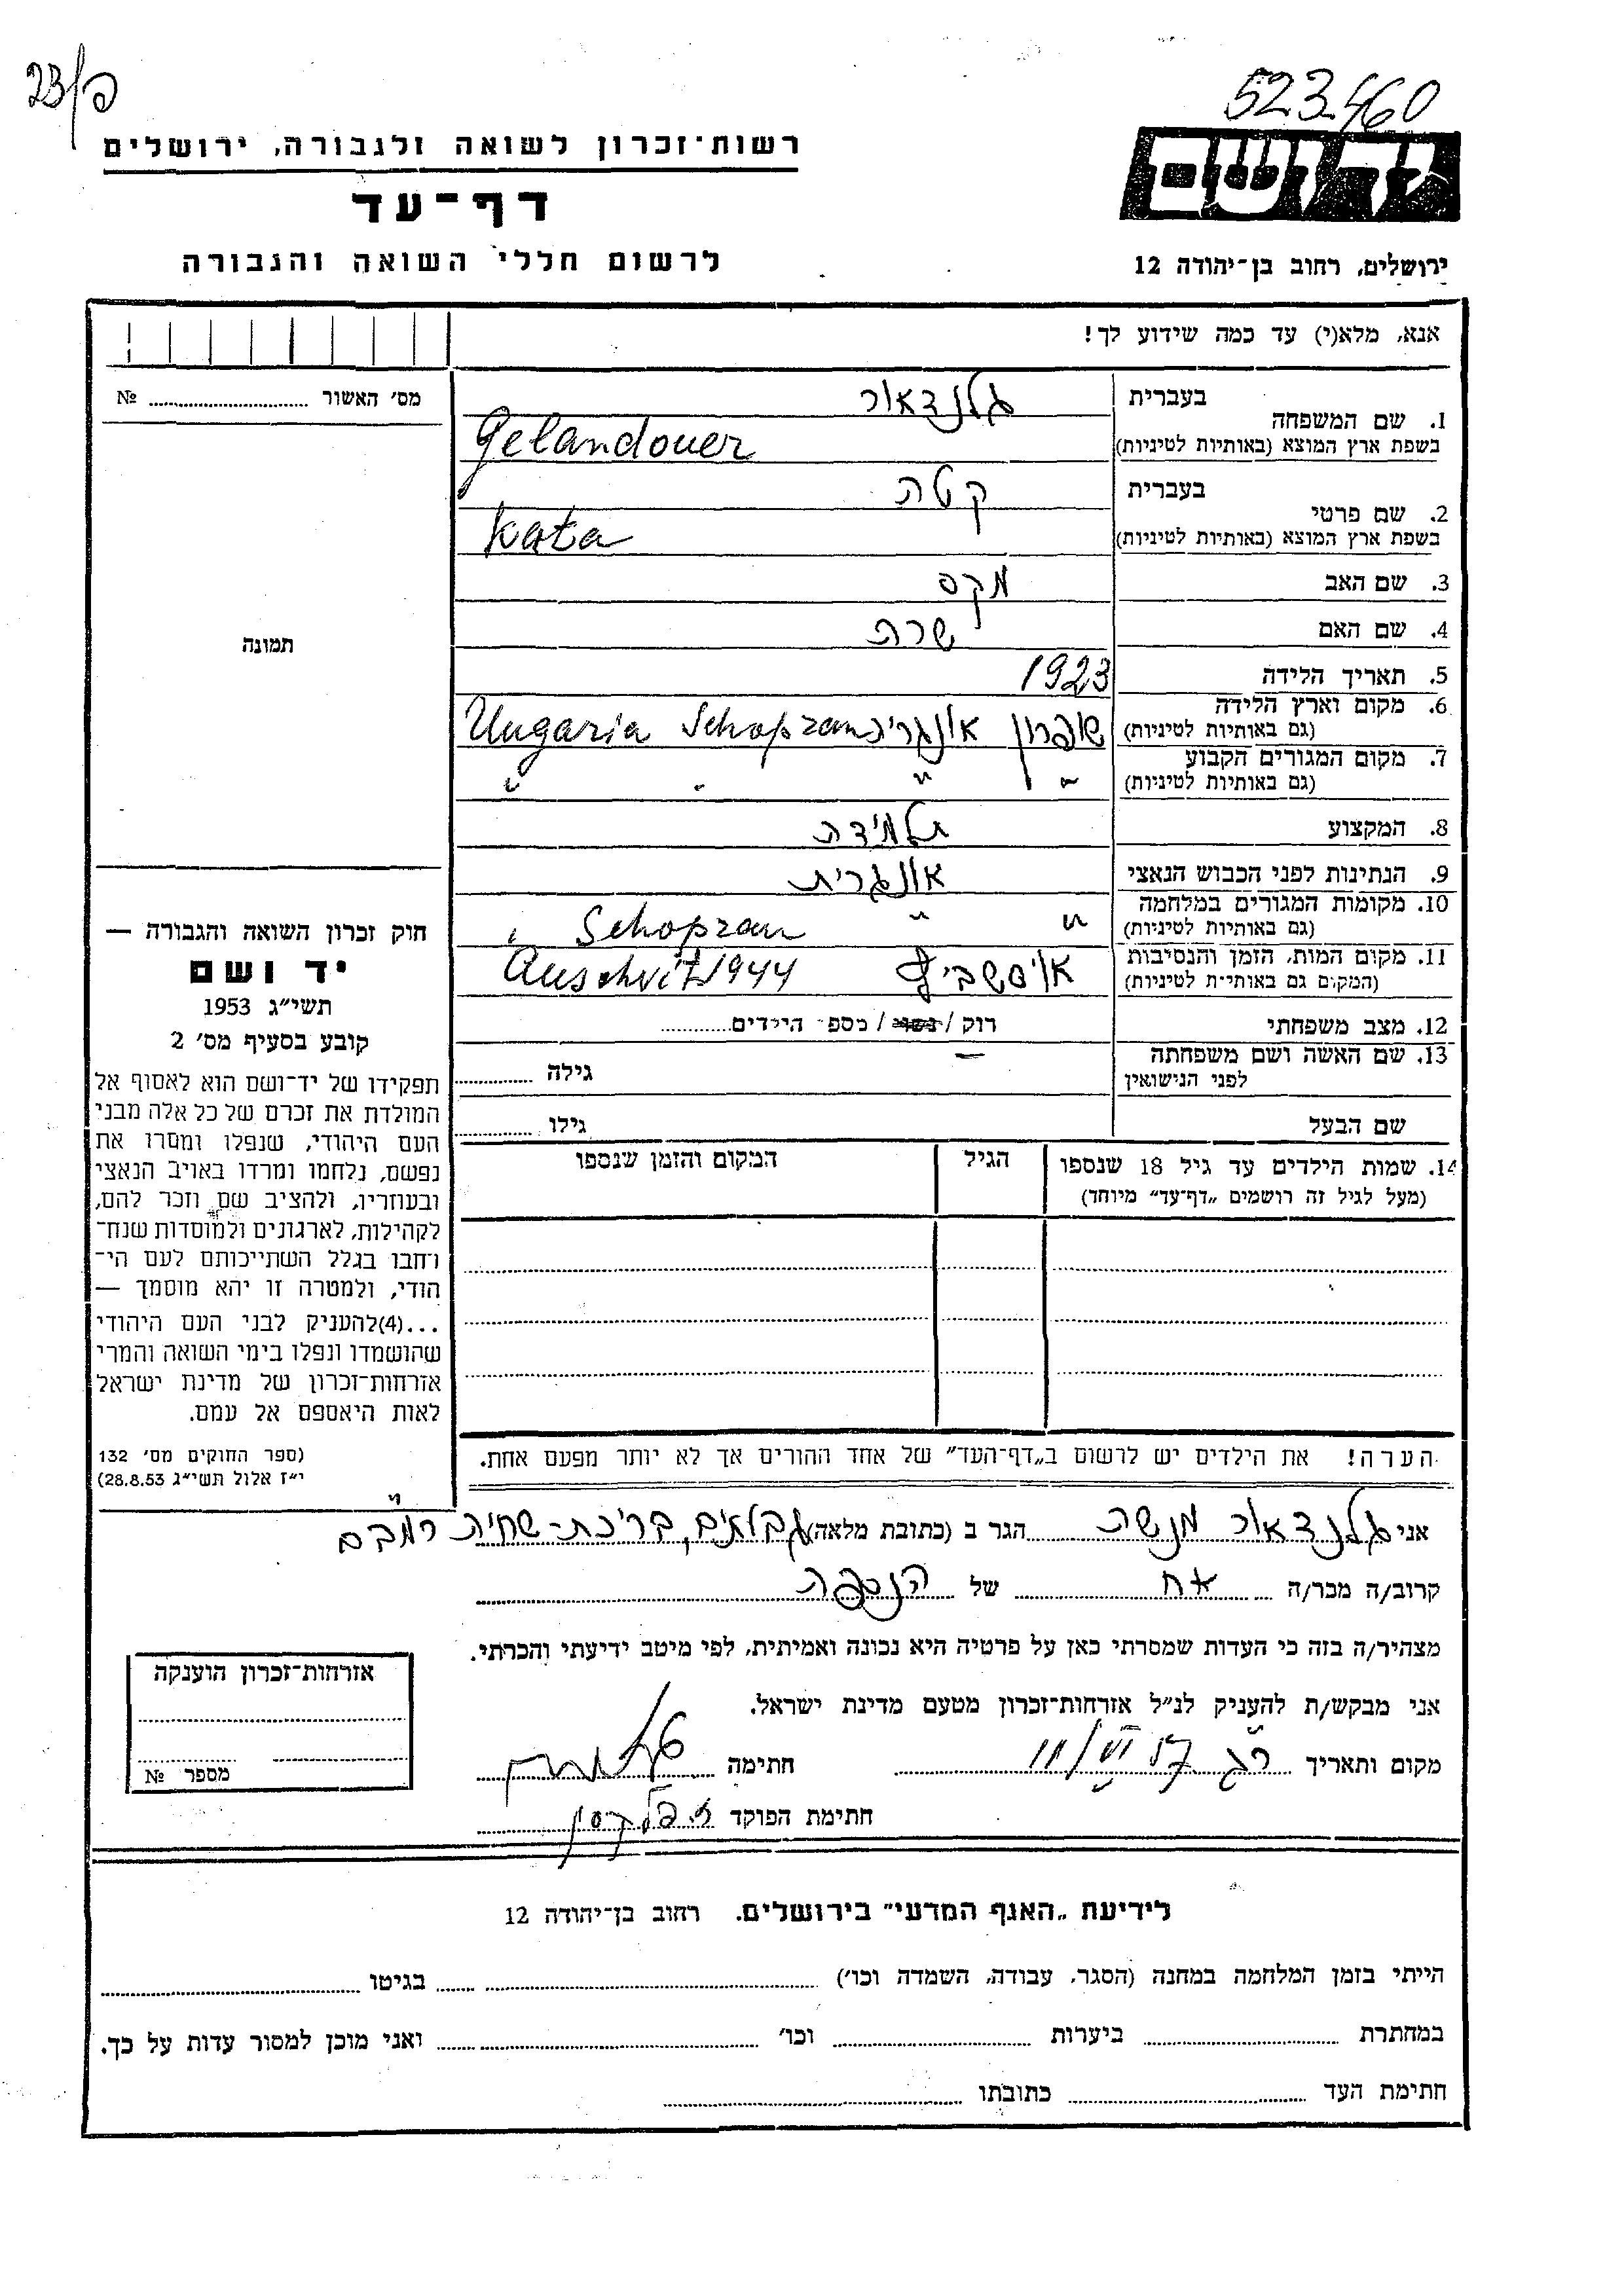 23/פ
523460
רשות-זכרון לשואה ולגבורה, ירושלים
יד ושם
דף-עד
לרשום חללי השואה והגבורה
ירושלים, רחוב בן-יהודה 12
אנא, מלא(י) עד כמה שידוע לך!
מס׳ האשור № 
1. שם המשפחה בעברית גלנדאור
בשפת ארץ המוצא (באותיות לטיניות) Gelandouer
2. שם פרטי בעברית קטה
בשפת ארץ המוצא (באותיות לטיניות) Kata
3. שם האב מקס
4. שם האם שרה
5. תאריך הלידה 1923
6. מקום וארץ הלידה (גם באותיות לטיניות) שופרון אונגריה Schopran Ungaria
7. מקום המגורים הקבוע (גם באותיות לטיניות) " " " "
8. המקצוע תלמידה
9. הנתינות לפני הכבוש הנאצי אונגרית
10. מקומות המגורים במלחמה (גם באותיות לטיניות) " " Schopran "
11. מקום המות, הזמן והנסיבות (המקום גם באותיות לטיניות) אושביץ Auschvitz 1944
12. מצב משפחתי רוק / נשוי / מספר הילדים
13. שם האשה ושם משפחתה לפני הנישואין — גילה
שם הבעל גילו
14. שמות הילדים עד גיל 18 שנספו (מעל לגיל זה רושמים „דף-עד״ מיוחד) הגיל המקום והזמן שנספו
תמונה
חוק זכרון השואה והגבורה —
יד ושם
תשי״ג 1953
קובע בסעיף מס׳ 2
תפקידו של יד-ושם הוא לאסוף אל
המולדת את זכרם של כל אלה מבני
העם היהודי, שנפלו ומסרו את
נפשם, נלחמו ומרדו באויב הנאצי
ובעוזריו, ולהציב שם וזכר להם,
לקהילות, לארגונים ולמוסדות שנח-
רחבו בגלל השתייכותם לעם הי-
הודי, ולמטרה זו יהא מוסמך —
...(4)להעניק לבני העם היהודי
שהושמדו ונפלו בימי השואה והמרי
אזרחות-זכרון של מדינת ישראל
לאות היאספם אל עמם.
(ספר החוקים מס׳ 132
י״ז אלול תשי״ג 28.8.53)
הערה! את הילדים יש לרשום ב„דף-העד״ של אחד ההורים אך לא יותר מפעם אחת.
אני גלנדאור מנשה הגר ב (כתובת מלאה) גבתאים, בריכת-שחיה רמב"ם
קרוב/ה מכר/ה אח של הנספה
מצהיר/ה בזה כי העדות שמסרתי כאן על פרטיה היא נכונה ואמיתית, לפי מיטב ידיעתי והכרתי.
אני מבקש/ת להעניק לנ״ל אזרחות-זכרון מטעם מדינת ישראל.
מקום ותאריך רג חתימה
חתימת הפוקד
אזרחות-זכרון הוענקה
מספר №
לידיעת „האגף המדעי״ בירושלים. רחוב בן-יהודה 12
הייתי בזמן המלחמה במחנה (הסגר, עבודה, השמדה וכו׳) בגיטו
במחתרת ביערות וכו׳ ואני מוכן למסור עדות על כך.
חתימת העד כתובתו